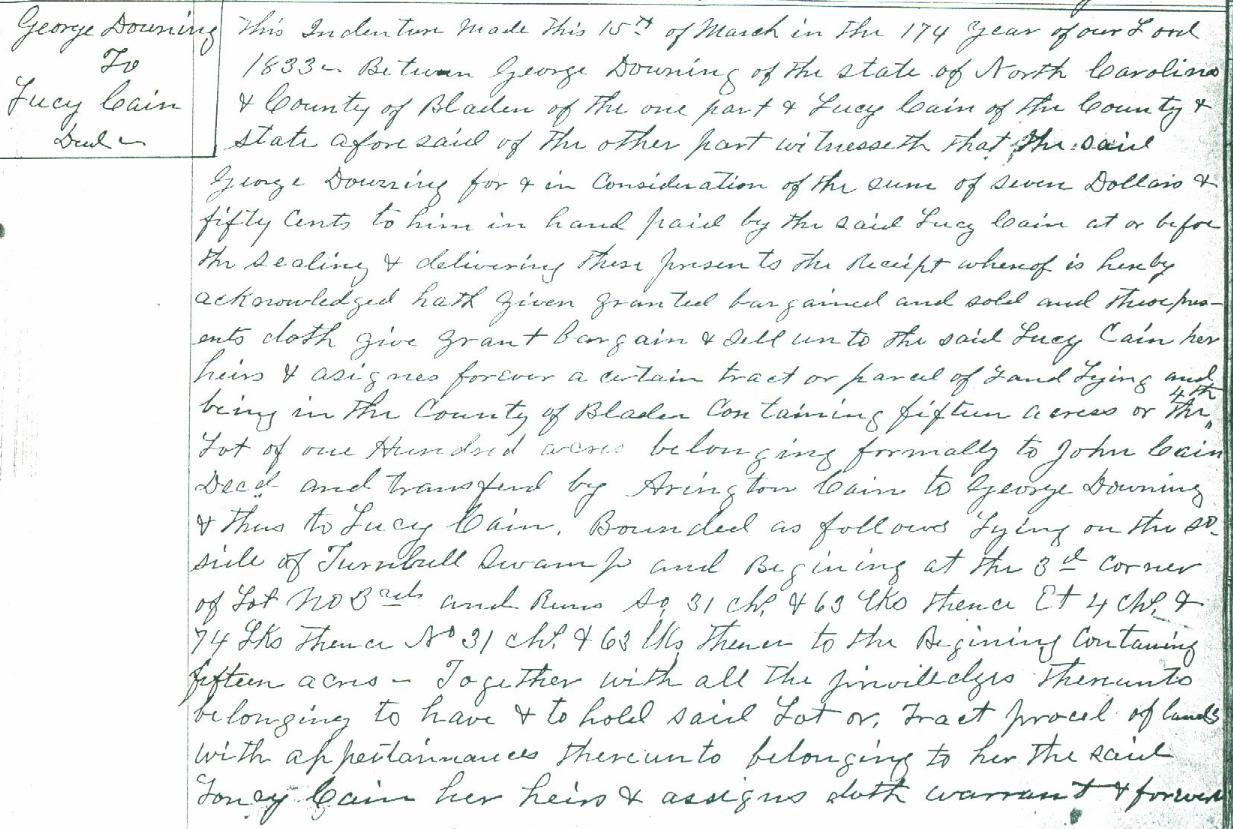 George Downing
To
Lucy Cain
Deed
This Indenture Made this 15th of March in the 174 Year of our Lord
1833 - Between George Downing of the state of North Carolina
& County of Bladen of the one part & Lucy Cain of the County &
state afore said of the other part witnesseth that the said
George Downing for & in Consideration of the sum of seven Dollars &
fifty Cents to him in hand paid by the said Lucy Cain at or before
the sealing & delivering these presents the Receipt whereof is hereby
acknowledged hath given granted bargained and sold and these pres-
ents doth give grant bargain & sell unto the said Lucy Cain her
heirs & asignes forever a certain tract or parcel of Land Lying and
being in the County of Bladen Containing fifteen acress or the 4th
Lot of one Hundred acres belonging formally to John Cain
Decd and transferd by Arington Cain to George Downing
& thus to Lucy Cain. Bounded as follows Lying on the So.
side of Turnbull Swamp and Begining at the 3d Corner
of Lot No 3 and Runs So. 31 chs. & 63 lks thence Et 4 chs. &
74 Lks thence No 31 chs. & 63 lks thence to the Begining Contauing
fifteen acres - Together with all the priviledges thereunto
belonging to have & to hold said Lot or, Tract procel of lands
with appertainnances thereunto belonging to her the said
Cain her heirs & assigns doth warrant &